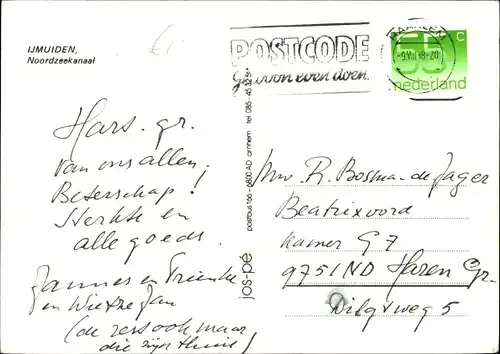 IJMUIDEN,
Noordzeekanaal
POSTCODE
gewoon even doen.
HAARLEM
-9.VII.  18-20
55 c
nederland
Hart. gr.
van ons allen,
Beterschap!
Sterkte en
alle goeds.
Jannes en Trienke
en Wietze Jan
(de rest ook maar
die zijn thuis)
jos-pé
postbus 166 - 6800 AD arnhem tel. 085-45
Mw. R. Bosma-de Jager
Beatrixoord
Kamer G7
9751ND Haren Gr.
Dilgtweg 5